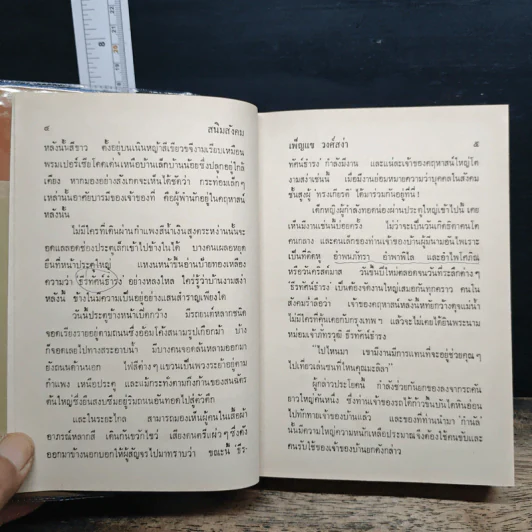 ๘ สนิมสังคม
หลังนั้นสีขาว ตั้งอยู่บนเนินหญ้าสีเขียวขจีงามเรียบเหมือน
พรมเปอร์เซียโดดเด่นเหนือบ้านเล็กบ้านน้อยซึ่งปลูกอยู่ใกล้
เคียง หากมองอย่างสังเกตจะเห็นได้ชัดว่า กระท่อมเล็กๆ
เหล่านั้นอาศัยบารมีของเจ้าของที่ คือผู้พำนักอยู่ในคฤหาสน์
หลังนั้น
ไม่มีใครที่เดินผ่านกำแพงสีน้ำเงินสูงตระหง่านนั้นจะ
อดแลลอดช่องประตูเหล็กเข้าไปข้างในได้ บางคนเผลอหยุด
ยืนที่หน้าประตูใหญ่ แหงนหน้าขึ้นอ่านป้ายทองเหลือง
ความว่า ธีรทัศน์ธำรง อย่างหลงใหล ใครรู้ว่าบ้านงามสง่า
หลังนี้ ข้างในมีความเป็นอยู่อย่างแสนสำราญเพียงใด
วันนี้ประตูข้างหน้าเปิดกว้าง มีรถยนต์หลากชนิด
จอดเรียงรายอยู่ตามถนนซึ่งอ้อมโค้งสนามรูปเกือกม้า บ้าง
ก็จอดเลยไปทางสระอาบน้ำ มีบางคนจอดล้นหลามออกมา
ยังถนนด้านนอก ไฟสีต่าง ๆ แขวนเป็นพวงระย้าอยู่ตาม
กำแพง เหนือประตู และแม้กระทั่งตามกิ่งก้านของสนฉัตร
ต้นใหญ่ซึ่งยืนสงบซึมอยู่ริมถนนอันทอดไปสู่ตัวตึก
และในระยะไกล สามารถมองเห็นผู้คนในเสื้อผ้า
อาภรณ์หลากสี เดินกันขวักไขว่ เสียงดนตรีแผ่ว ๆ ซึ่งดัง
ออกมาข้างนอกบอกให้ผู้สัญจรไปมาทราบว่า ขณะนี้ ธีร-
เพ็ญแข วงศ์สง่า ๕
ทัศน์ธำรง กำลังมีงาน และแน่ละเจ้าของคฤหาสน์ใหญ่โต
งามสง่าเช่นนี้ เมื่อมีงานย่อมหมายความว่าบุคคลในสังคม
ชั้นสูงผู้ 'ทรงเกียรติ' ได้มาร่วมกันอยู่ที่นี่ !
เด็กหญิงผู้กำลังทอดน่องผ่านประตูใหญ่เข้าไปนี้ เคย
เห็นมีงานเช่นนี้บ่อยครั้ง ไม่ว่าจะเป็นวันเกิดธิดาคนโต
คนกลาง และคนเล็กของท่านเจ้าของบ้านผู้มีนามอันไพเราะ
เป็นที่ติดหู อำพนภัทรา อำพาพิไล และอำไพโสภิณ
หรือวันคริสต์มาส วันขึ้นปีใหม่ตลอดจนวันที่ระลึกต่างๆ
ธีรทัศน์ธำรง เป็นต้องจัดงานใหญ่เสมอกันทุกคราว คนใน
สังคมรำลือว่า เจ้าของคฤหาสน์หลังนี้หทัยกว้างดุจแม่น้ำ
ไม่มีใครที่คุ้นเคยกับกรุงเทพฯ แล้วจะไม่เคยได้ยินพระนาม
หม่อมเจ้าภัทรวุฒิ ธีรทัศน์ธำรง
"ไปไหนมา เขามีงานมีการแทนที่จะอยู่ช่วยคุณๆ
ไปเที่ยวเล่นซนที่ไหนคุณมะลิลา"
ผู้กล่าวประโยคนี้ กำลังช่วยกันยกของลงจากรถคัน
ยาวใหญ่คันหนึ่ง ซึ่งท่านเจ้าของรถได้ก้าวขึ้นบันไดหินอ่อน
ไปทักทายเจ้าของบ้านแล้ว และของที่ท่านนำมา 'กำนัล'
นั้นมีความใหญ่ความหนักเหลือประมาณจึงต้องใช้คนขับและ
คนรับใช้ของเจ้าของบ้านยกดังกล่าว